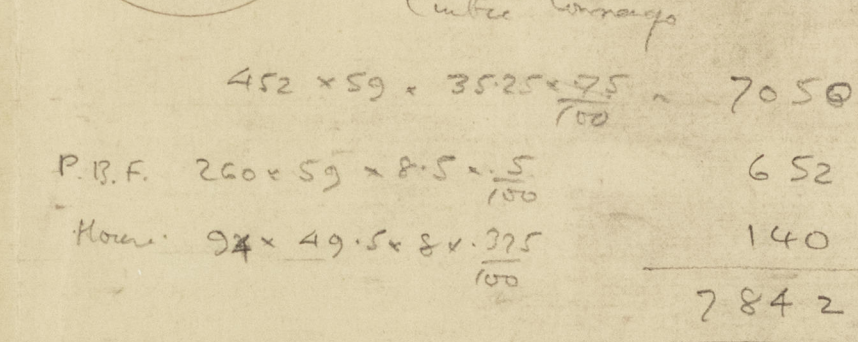 Tonnage
452 × 59 × 35.25 × .75/100 = 7050
P.B.F. 260 × 59 × 8.5 × .5/100 652
House. 94 × 49.5 × 8 × .375/100 140
7842